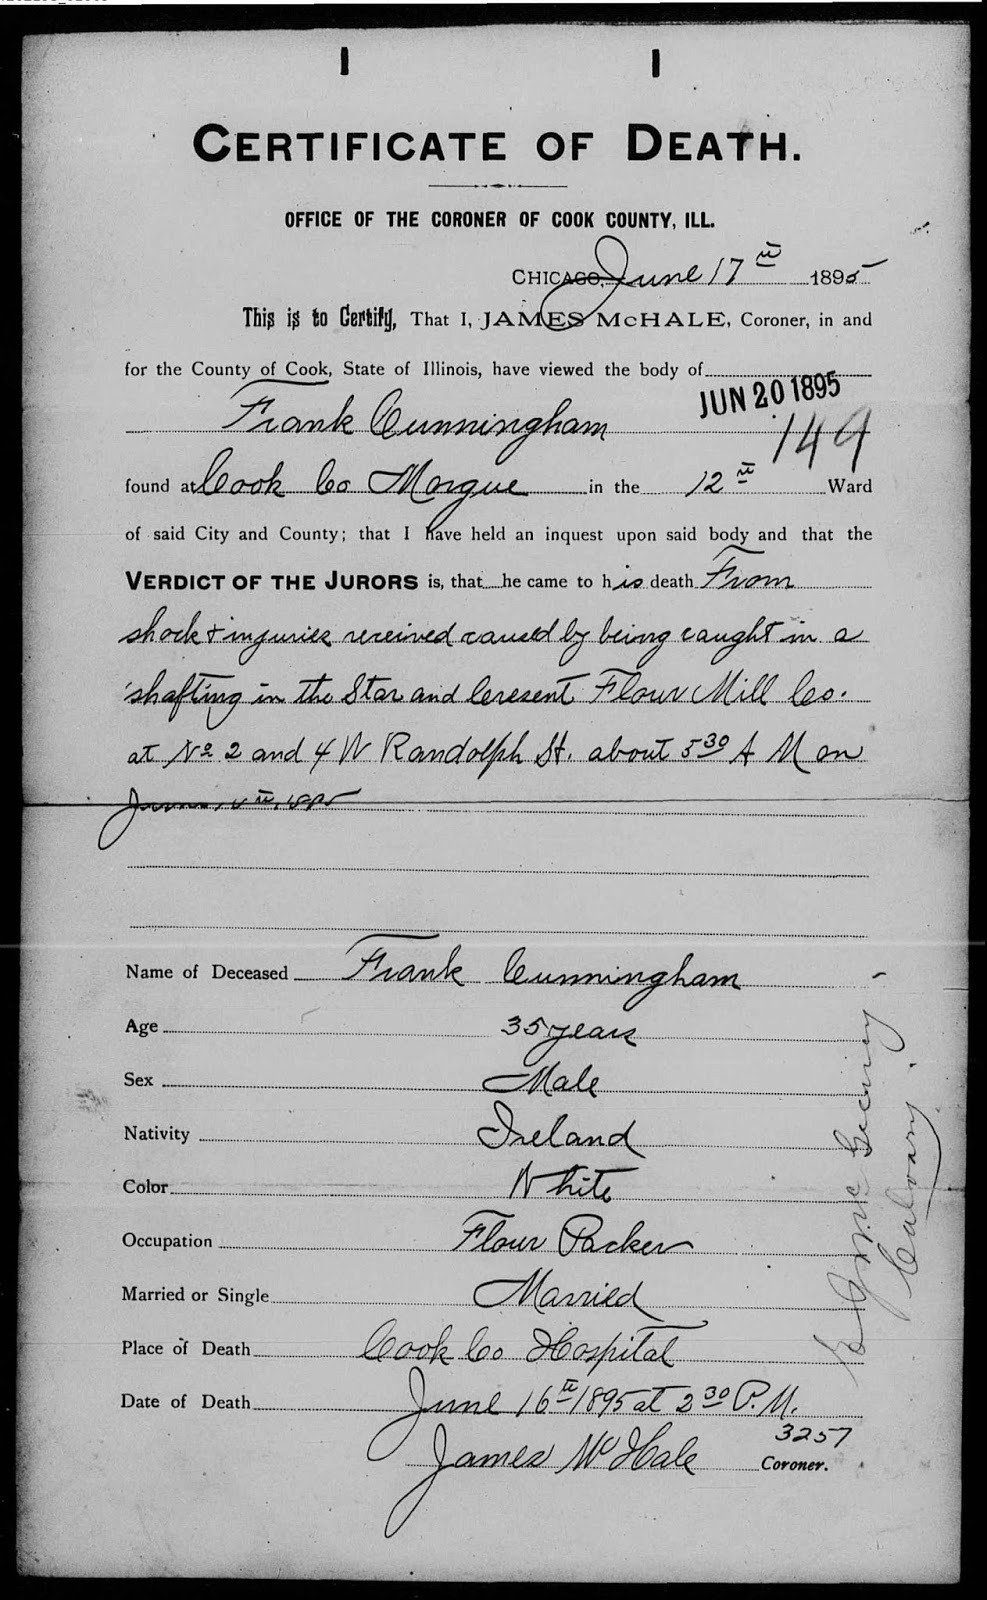 CERTIFICATE OF DEATH.
OFFICE OF THE CORONER OF COOK COUNTY, ILL.
CHICAGO, June 17th 1895
This is to Certify, That I, JAMES McHALE, Coroner, in and
for the County of Cook, State of Illinois, have viewed the body of
JUN 20 1895
Frank Cunningham
149
found at Cook Co Morgue in the 12th Ward
of said City and County; that I have held an inquest upon said body and that the
VERDICT OF THE JURORS is, that he came to his death From
shock + injuries received caused by being caught in a
shafting in the Star and Cresent Flour Mill Co.
at No 2 and 4 W Randolph St. about 5 30 A M on
June 1895
Name of Deceased Frank Cunningham
Age 35 years
Sex Male
Nativity Ireland
Color White
Occupation Flour Packer
Married or Single Married
Place of Death Cook Co Hospital
Date of Death June 16th 1895 at 2 30 P.M.
3257
James McHale Coroner.
Calvary.